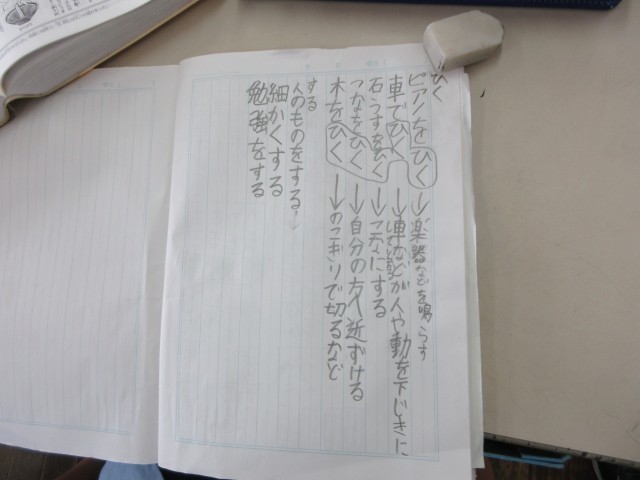 ひく
ピアノをひく→楽器などを鳴らす
車でひく→車などが人や動を下じきに
石うすをひく→こなにする
つなをひく→自分の方へ近ずける
木をひく→のこぎりで切るなど
する
人のものをする→
細かくする
勉強をする